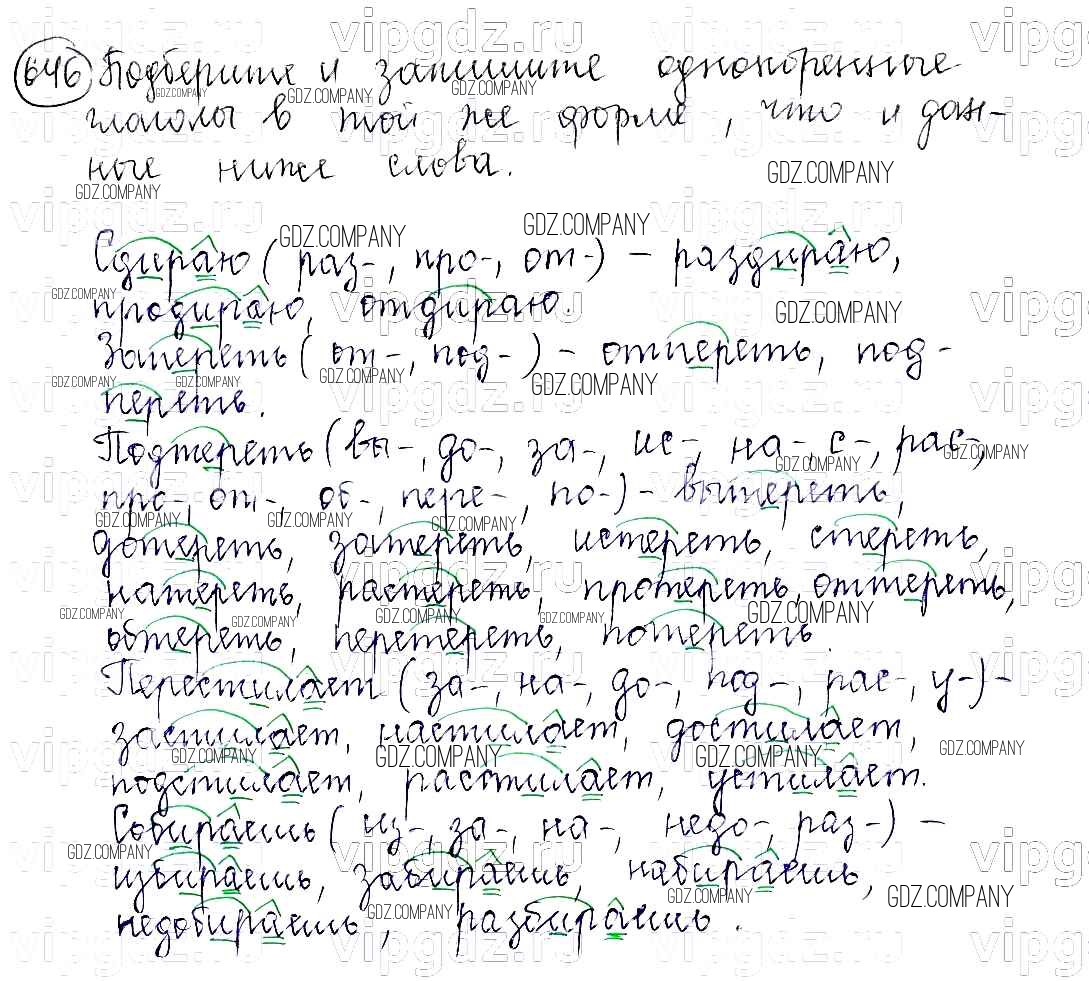 646 Подберите и запишите однокоренные
глаголы в той же форме, что и дан-
ные ниже слова.
Сдираю (раз-, про-, от-) - раздираю,
продираю, отдираю.
Запереть (от-, под-) - отпереть, под-
переть.
Подтереть (вы-, до-, за-, ис-, на-, с-, рас-,
про-, от-, об-, пере-, по-) - вытереть,
дотереть, затереть, истереть, стереть,
натереть, растереть, протереть, оттереть,
обтереть, перетереть, потереть.
Перестилает (за-, на-, до-, под-, рас-, у-) -
застилает, настилает, достилает,
подстилает, расстилает, устилает.
Собираешь (из-, за-, на-, недо-, раз-) -
избираешь, забираешь, набираешь,
недобираешь, разбираешь.
vipgdz.ru
GDZ.COMPANY